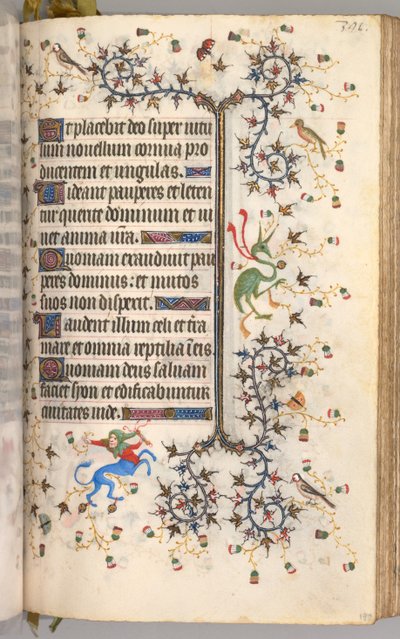 Et placebit deo super uitu
lum nouellum cornua pro
ducentem et ungulas.
Uideant pauperes et leten
tur querite dominum et ui
uet anima ur̃a.
Quoniam exaudiuit pau
peres dominus: et uinctos
suos non dispexit.
Laudent illum celi et t̃ra
mare et omnia reptilia ĩ eis.
Quoniam deus saluam
faciet syon et edificabuntur
ciuitates iude.